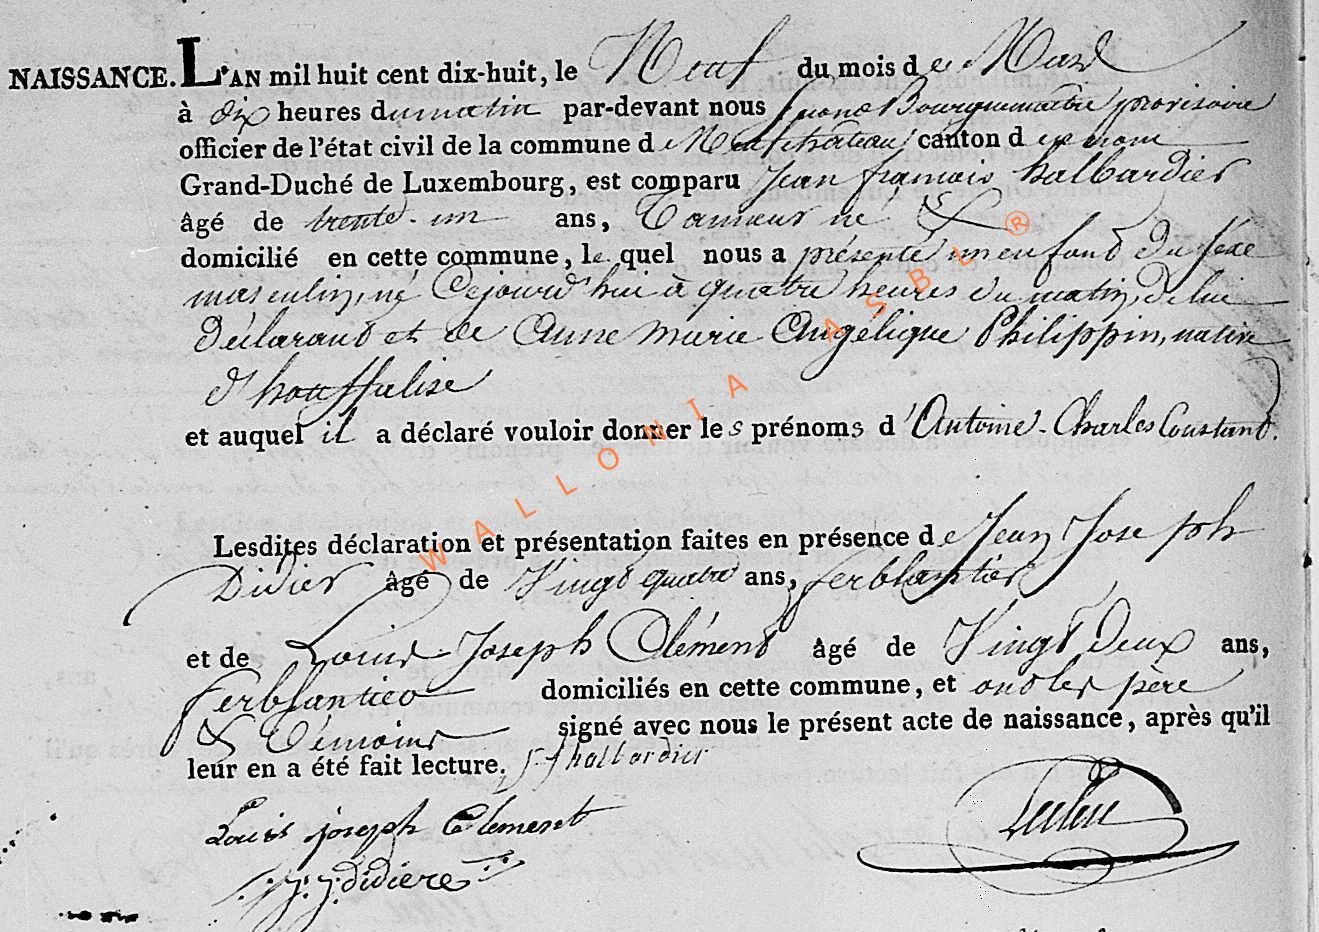 NAISSANCE. L'AN mil huit cent dix-huit, le Neuf du mois de Mars
à dix heures du matin par-devant nous Bourguemaître provisoire
officier de l'état civil de la commune de Neufchateau canton de ce nom
Grand-Duché de Luxembourg, est comparu Jean françois halbardier
âgé de trente-un ans, Tanneur né &
domicilié en cette commune, le quel nous a présenté un enfant du séxe
masculin, né Cejourd'hui à quatre heures du matin, de lui
Déclarant et de Anne Marie Angélique Philippin, native
d'houffalise
et auquel il a déclaré vouloir donner les prénoms d'Antoine-Charles Constant.
Lesdites déclaration et présentation faites en présence de Jean Joseph
Didier âgé de Vingt quatre ans, ferblantier
et de Louis Joseph Clément âgé de Vingt Deux ans,
ferblantier domiciliés en cette commune, et ont les père
& témoins signé avec nous le présent acte de naissance, après qu'il
leur en a été fait lecture. J f halbardier
Louis joseph Clement
J: J: didière
WALLONIA ASBL ®